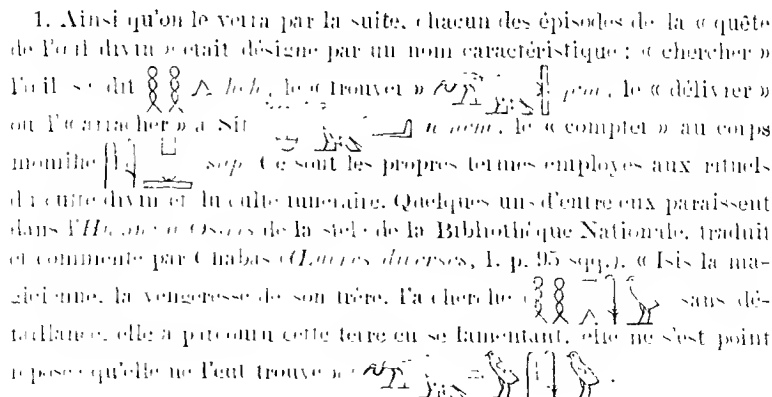 1. Ainsi qu'on le verra par la suite, chacun des épisodes de la « quête
de l'œil divin » était désigné par un nom caractéristique : « chercher »
l'œil se dit 𓎛𓎛𓂻 ḥeḥ, le « trouver » le « délivrer »
ou l'« arracher » à Sit le « compter » au corps
momifié sap. Ce sont les propres termes employés aux rituels
du culte divin et du culte funéraire. Quelques uns d'entre eux paraissent
dans l'Hymne à Osiris de la stèle de la Bibliothèque Nationale, traduit
et commenté par Chabas (Œuvres diverses, I, p. 95 sqq.). « Isis la ma-
gicienne, la vengeresse de son frère, l'a cherché sans dé-
faillance, elle a parcouru cette terre en se lamentant, elle ne s'est point
reposée qu'elle ne l'eut trouvé »